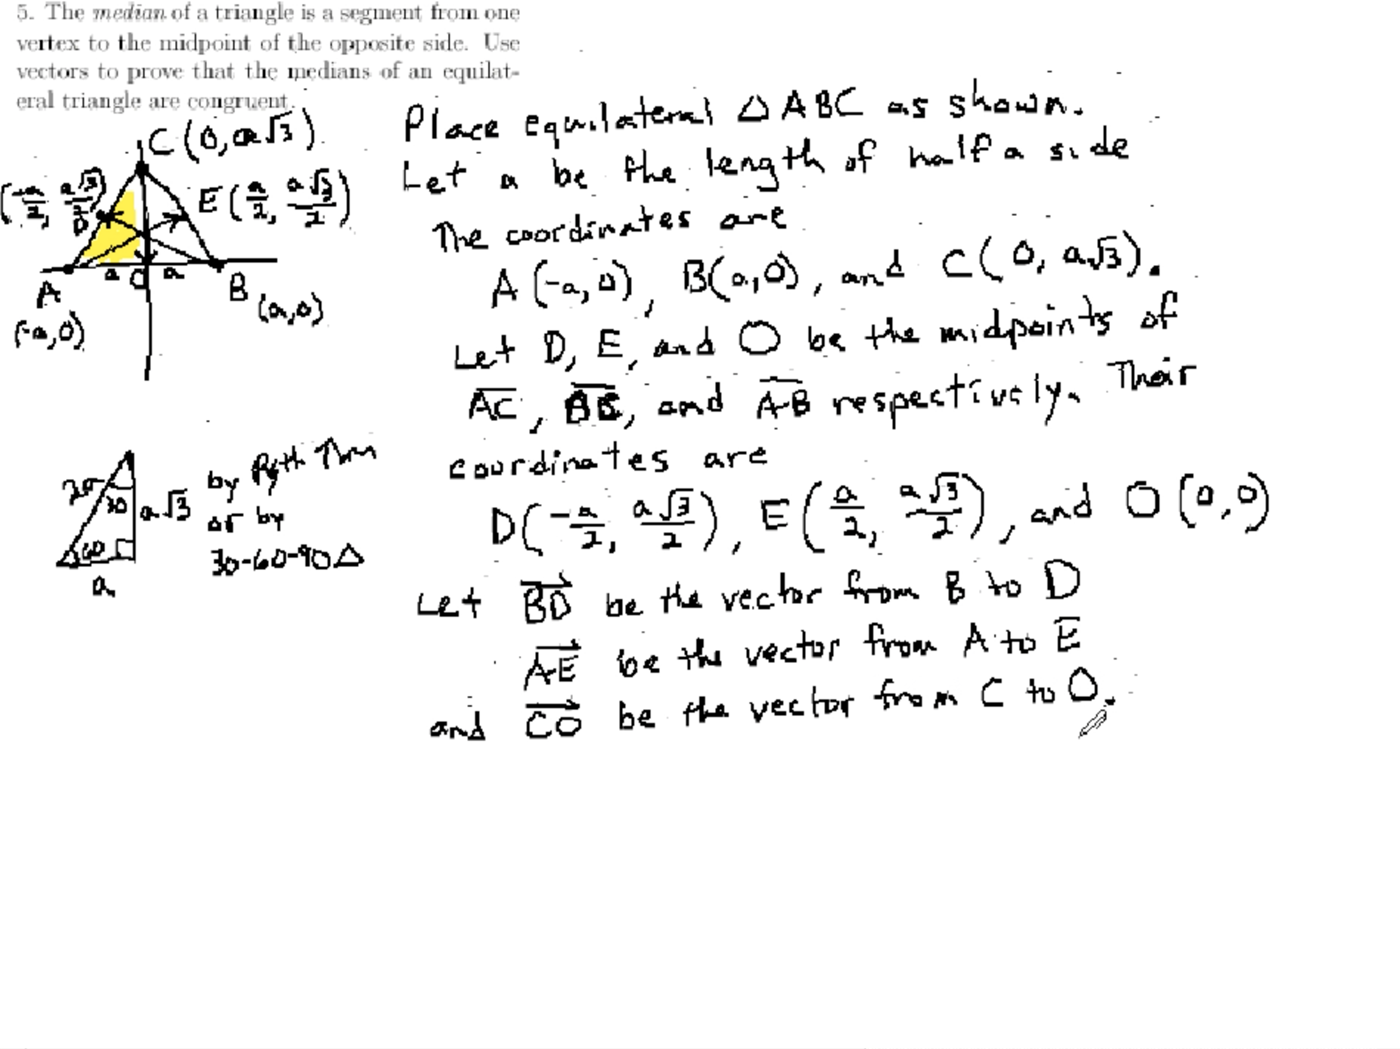 5. The median of a triangle is a segment from one
vertex to the midpoint of the opposite side. Use
vectors to prove that the medians of an equilat-
eral triangle are congruent.
C (0, a√3)
(-a/2, a√3/2)
D
E (a/2, a√3/2)
a O a
A
B
(-a,0)
(a,0)
2a
30
a√3
60
a
by Pyth Thm
or by
30-60-90△
Place equilateral △ABC as shown.
Let a be the length of half a side
The coordinates are
A(-a,0), B(a,0), and C(0, a√3).
Let D, E, and O be the midpoints of
AC, BC, and AB respectively. Their
coordinates are
D(-a/2, a√3/2), E(a/2, a√3/2), and O(0,0)
Let BD be the vector from B to D
AE be the vector from A to E
and CO be the vector from C to O.